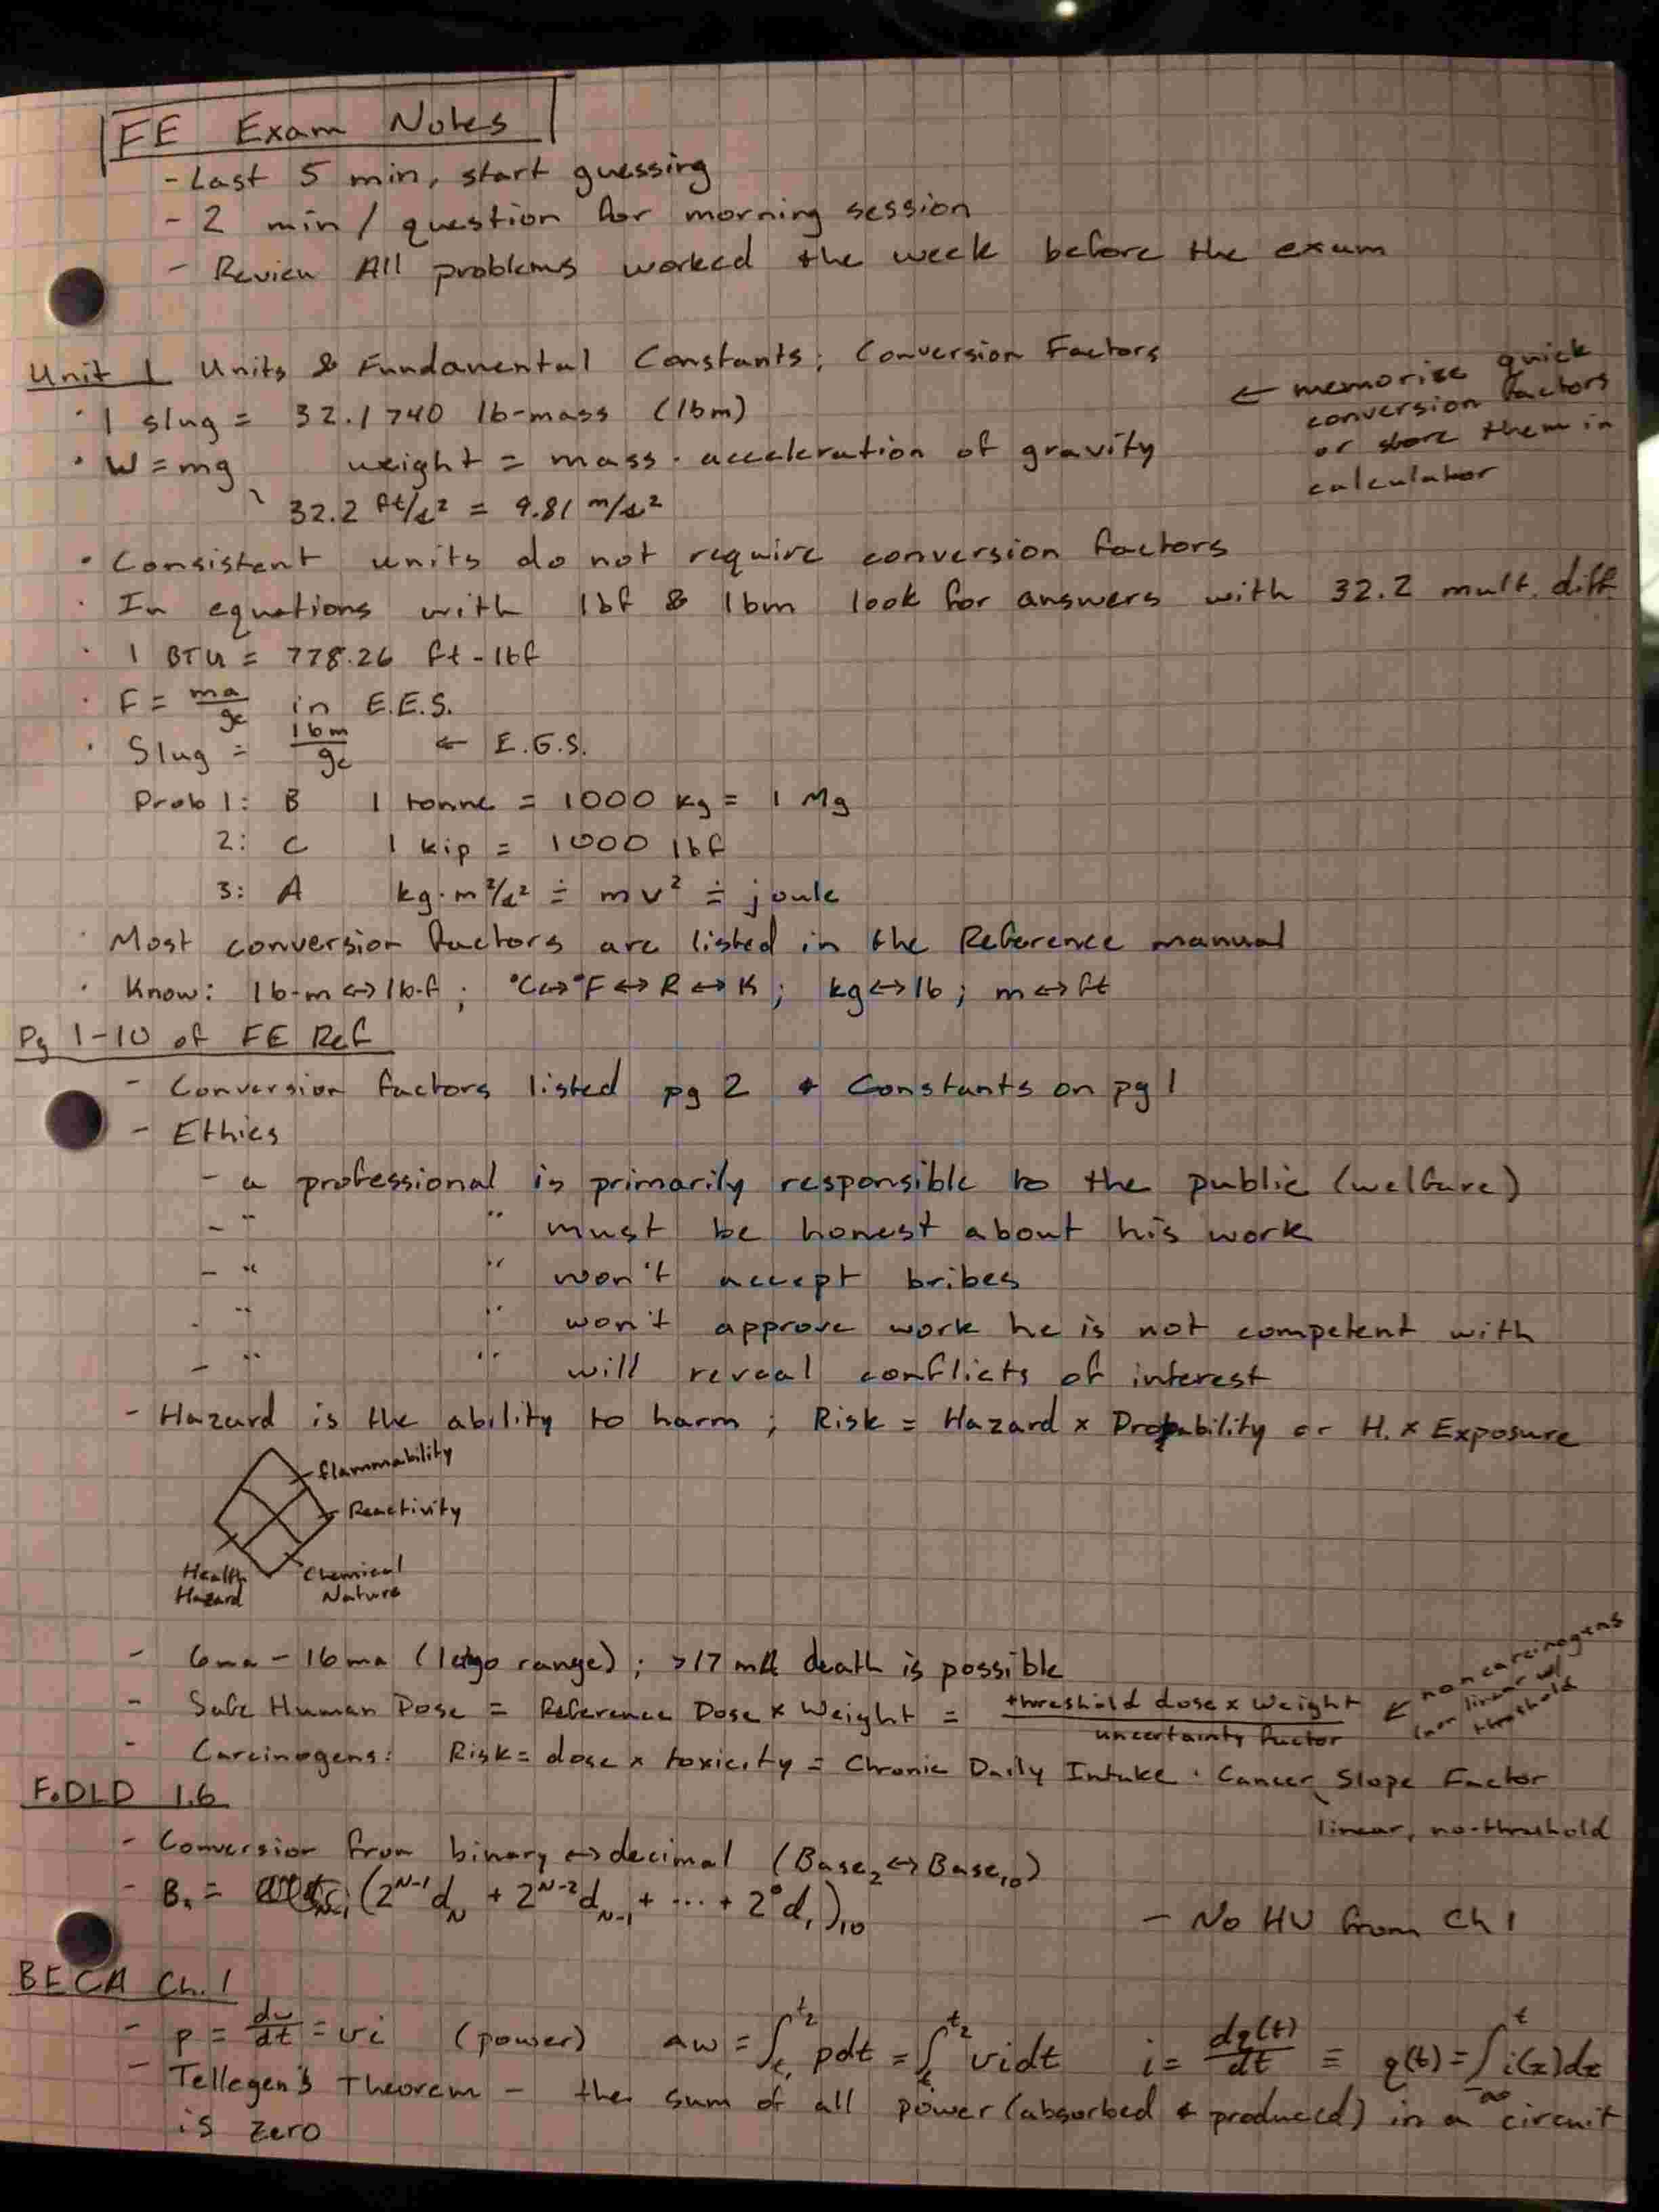 FE Exam Notes
- Last 5 min, start guessing
- 2 min / question for morning session
- Review All problems worked the week before the exam
Unit 1 Units & Fundamental Constants; Conversion Factors
← memorize quick
conversion factors
or store them in
calculator
· 1 slug = 32.1740 lb-mass (lbm)
· W = mg weight = mass · acceleration of gravity
32.2 ft/s² = 9.81 m/s²
· Consistent units do not require conversion factors
· In equations with lbf & lbm look for answers with 32.2 mult. diff.
· 1 BTU = 778.26 ft-lbf
· F = ma/gc in E.E.S.
· Slug = lbm/gc ← E.G.S.
Prob 1: B 1 tonne = 1000 kg = 1 Mg
2: C 1 kip = 1000 lbf
3: A kg·m²/s² ≐ mv² ≐ joule
· Most conversion factors are listed in the Reference manual
· Know: lb-m ↔ lb-f ; °C ↔ °F ↔ R ↔ K ; kg ↔ lb ; m ↔ ft
Pg 1-10 of FE Ref
- Conversion factors listed pg 2 & Constants on pg 1
- Ethics
- a professional is primarily responsible to the public (welfare)
- " " must be honest about his work
- " " won't accept bribes
- " " won't approve work he is not competent with
- " " will reveal conflicts of interest
- Hazard is the ability to harm ; Risk = Hazard x Probability or H. x Exposure
Flammability
Reactivity
Health Hazard
Chemical Nature
- 6ma - 16ma (letgo range) ; >17 mA death is possible
- Safe Human Dose = Reference Dose x Weight = threshold dose x Weight / uncertainty factor
← noncarcinogens
(non linear w/
threshold
- Carcinogens: Risk = dose x toxicity = Chronic Daily Intake · Cancer Slope Factor
linear, no-threshold
F.DLD 1.6
- Conversion from binary ↔ decimal (Base₂ ↔ Base₁₀)
- (2^(N-1) d_N + 2^(N-2) d_(N-1) + ... + 2⁰ d₁)₁₀
- No HW from Ch 1
BECA Ch. 1
- p = dw/dt = vi (power) Δw = ∫_t₁^t₂ pdt = ∫_t₁^t₂ vidt i = dq(t)/dt ≡ q(t) = ∫_-∞^t i(x)dx
- Tellegen's Theorem - the sum of all power (absorbed & produced) in a circuit
is zero